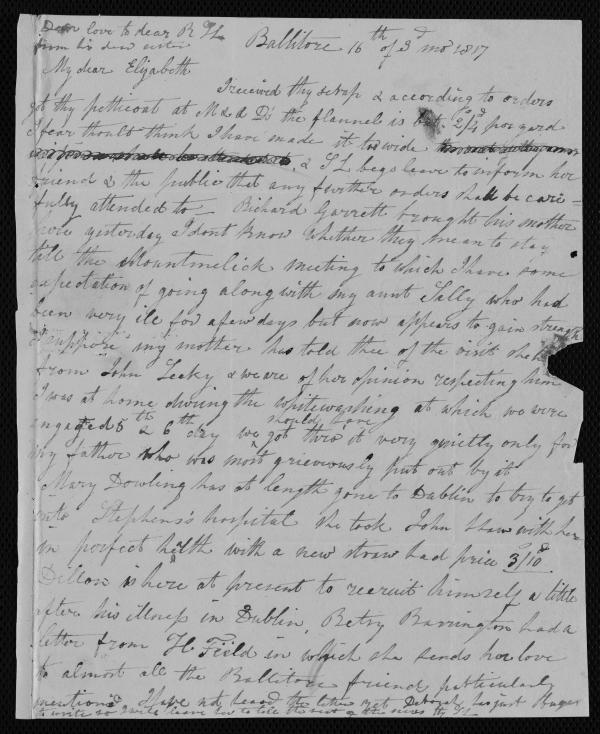 Dear love to dear R L
from his dear sister
Ballitore 16th of 3d mo 1817
My dear Elizabeth
I received thy scrap & according to orders
got thy petticoat at M & A D's the flannel is 2/4d per yard
I fear thou'lt think I have made it to wide
& S L begs leave to inform her
friend & the public that any further orders shall be care=
fully attended to — Richard Garrett brought his mother
here yesterday I dont know whether they mean to stay
till the Mountmelick meeting to which I have some
expectation of going along with my aunt Sally who had
been very ill for a few days but now appears to gain strength
I suppose my mother has told thee of the visit she had
from John Lecky & we are of her opinion respecting him
I was at home during the whitewashing at which we were
engaged 5th & 6th day we should have got thro it very quietly only for
my father who was most grieviously put out by it
Mary Dowling has at length gone to Dublin to try to get
into Stephens's hospital she took John Shaw with her
in perfect health with a new straw had price 3/10d
Dillon is here at present to recruit himself a little
after his illness in Dublin, Betsy Barrington had a
letter from H Field in which she sends her love
to almost all the Ballitore friends particularly
mentioned I have not heard the letter yet Deborah has just begun
to write so I will leave her to tell the rest of the news thy SL